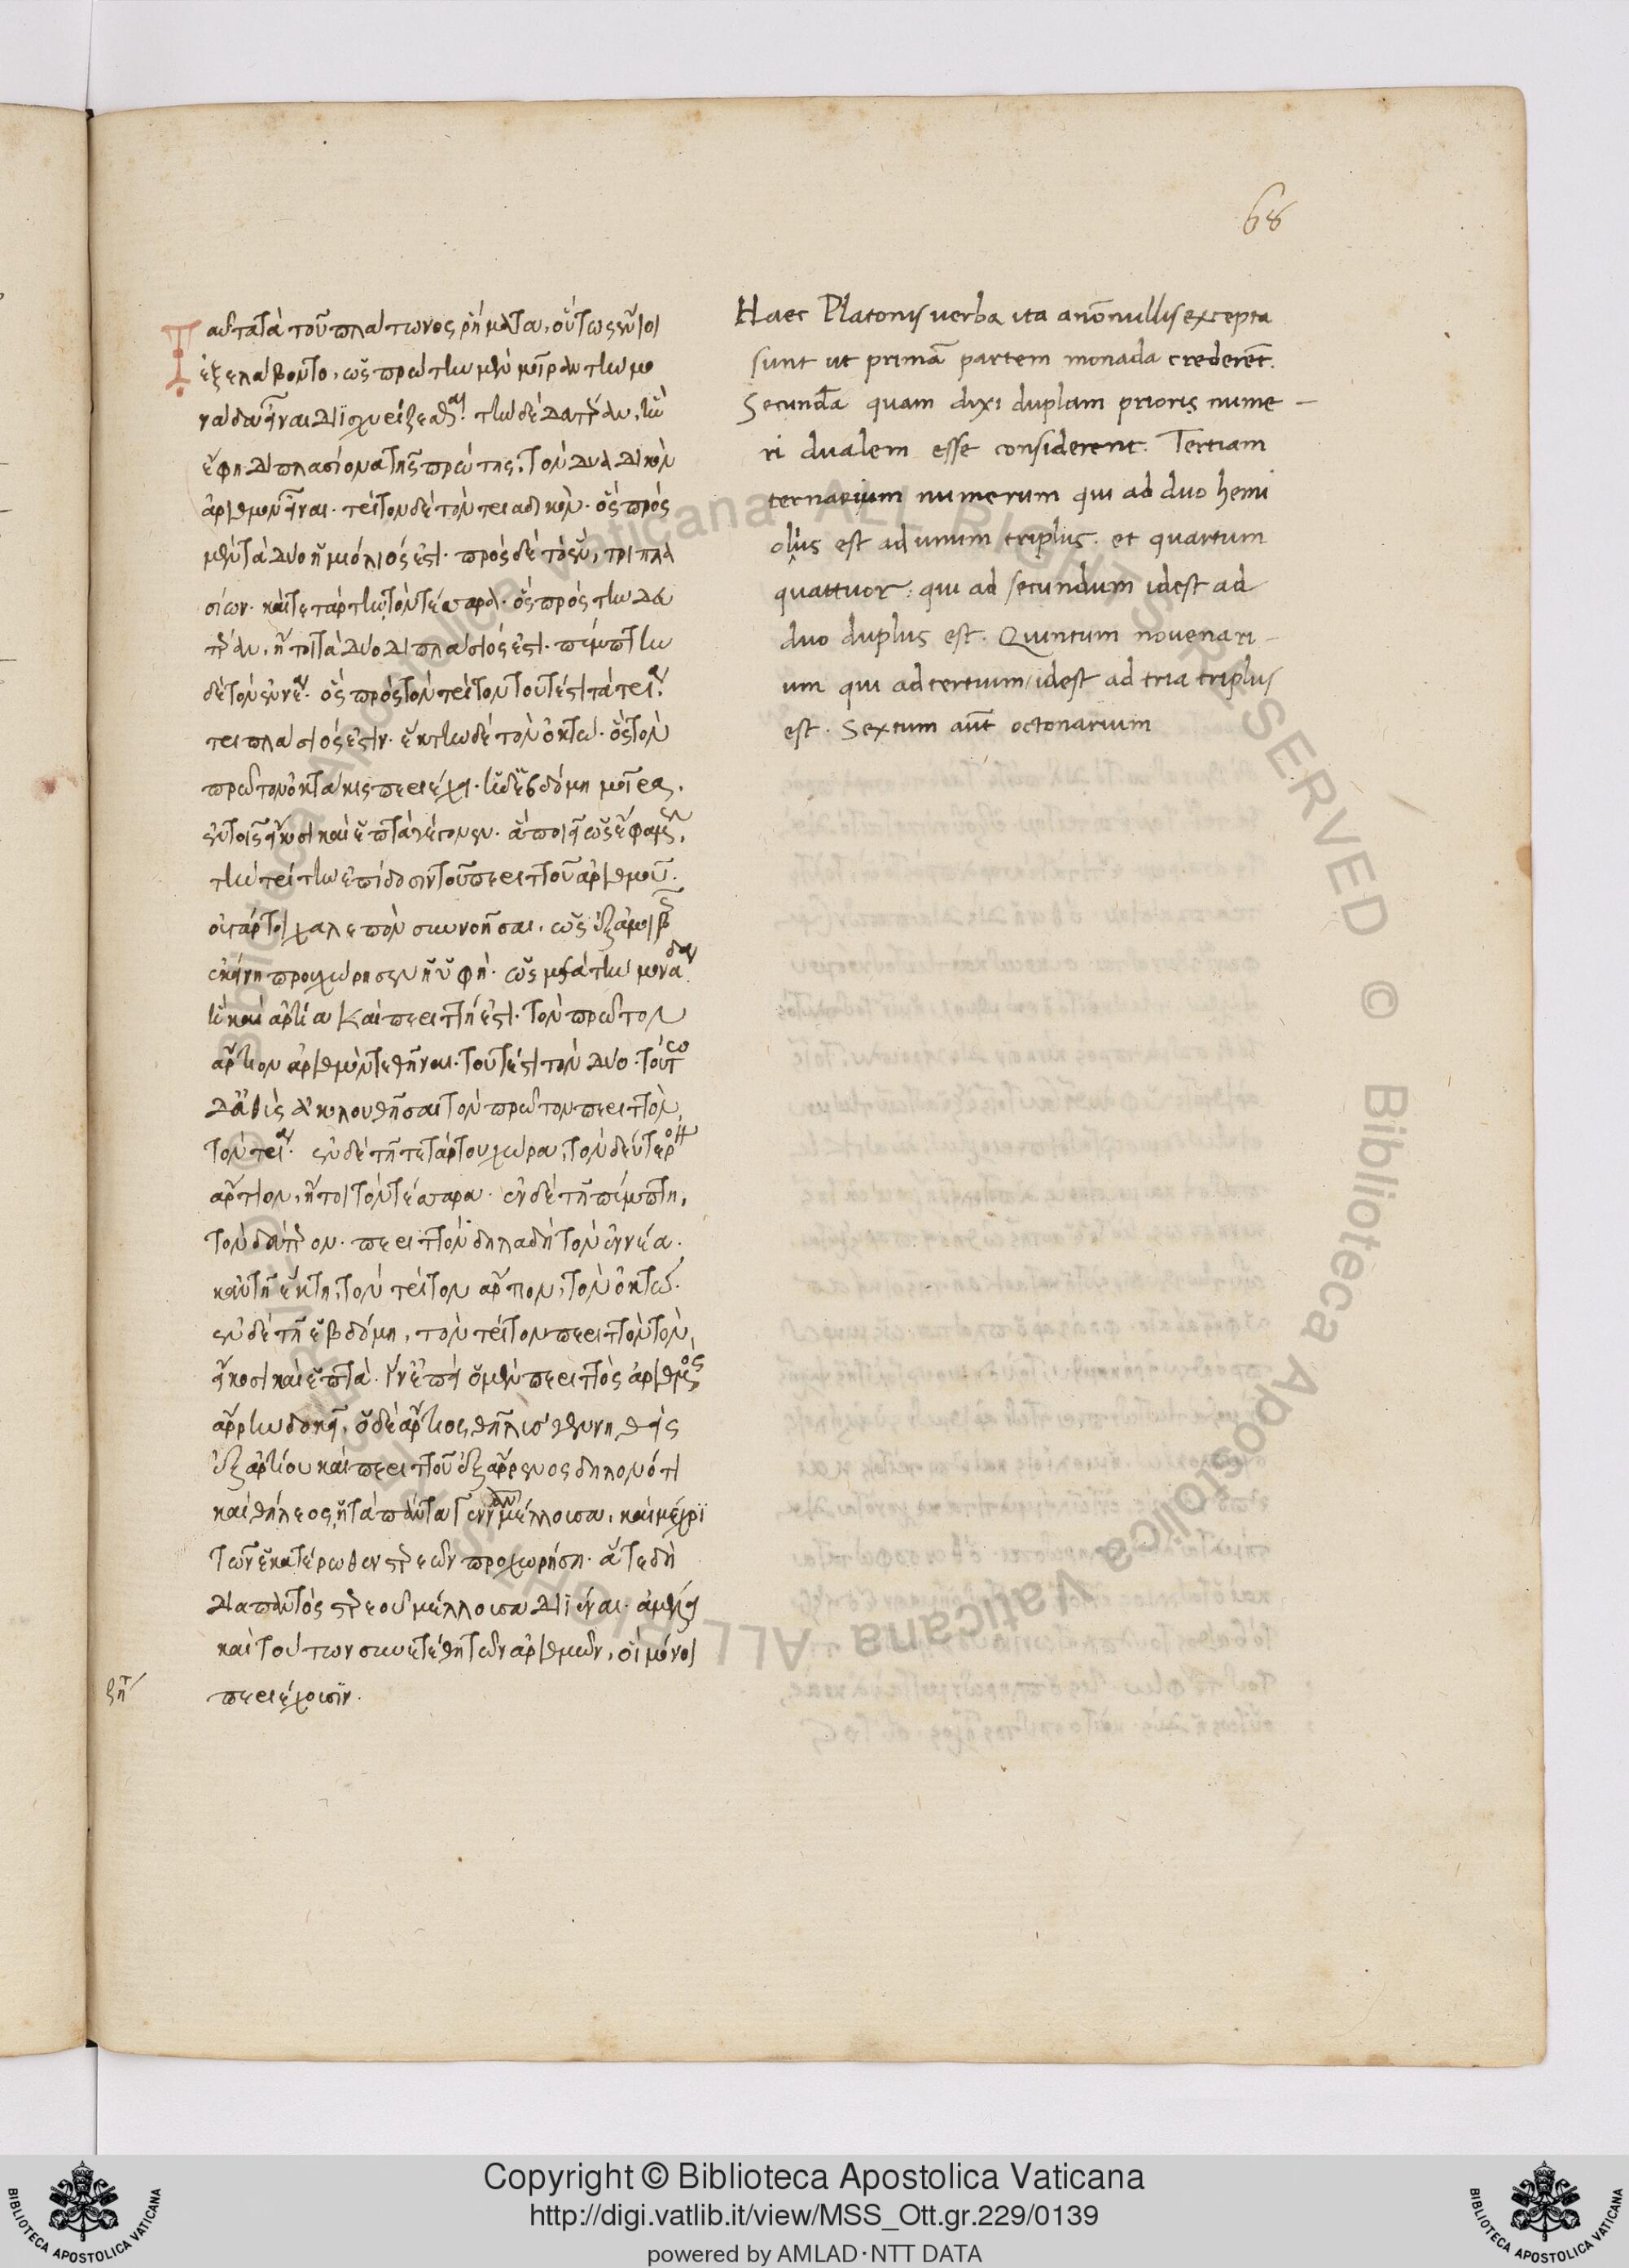 68
Ταῦτα τὰ τοῦ πλάτωνος ῥήματα, οὕτως ἔνιοι
ἐξελάβοντο, ὡς πρώτην μὲν μοῖραν τὴν μο
νάδα εἶναι διϊσχυρίζεσθαι. τὴν δὲ δευτέραν, ἣν
ἔφη διπλασίονα τῆς πρώτης, τὸν δυαδικὸν
ἀριθμὸν εἶναι. τρίτον δὲ τὸν τριαδικὸν. ὃς πρὸς
μὲν τὰ δύο ἡμιόλιός ἐστι. πρὸς δὲ τὸ ἓν, τριπλα
σίων. καὶ τετάρτην τὸν τέσσαρα. ὃς πρὸς τὴν δευ
τέραν, ἤτοι τὰ δύο διπλάσιός ἐστι. πέμπτην
δὲ τὸν ἐννέα. ὃς πρὸς τὸν τρίτον τουτέστι τὰ τρία.
τριπλάσιός ἐστιν. ἕκτην δὲ τὸν ὀκτώ. ὃς τὸν
πρῶτον ὀκτάκις περιέχει. ἡ δ' ἑβδόμη μοῖρα,
ἐν τοῖς εἴκοσι καὶ ἑπτὰ γέγονεν. ἃ ποιεῖ ὡς ἔφαμεν,
τὴν τρίτην ἐπίδοσιν τοῦ περιττοῦ ἀριθμοῦ.
οὐ γάρ τοι χαλεπὸν συννοῆσαι, ὡς ἐξ ἀμοιβῆς
ἐκείνη προεχώρησεν ἡ ὑφή. ὡς μετὰ τὴν μονάδα.
ἣ καὶ ἀρτία καὶ περιττή ἐστι. τὸν πρῶτον
ἄρτιον ἀριθμὸν τεθῆναι. τουτέστι τὸν δύο. τούτω
δ' αὖθις ἀκολουθῆσαι τὸν πρῶτον περιττὸν,
τὸν τρία. ἐν δὲ τῇ τετάρτου χώρα, τὸν δεύτερον
ἄρτιον, ἤτοι τὸν τέσσαρα. ἐν δὲ τῇ πέμπτῃ,
τὸν δεύτερον. περιττὸν δηλαδὴ τὸν ἐννέα.
κἀν τῇ ἕκτῃ, τὸν τρίτον ἄρτιον, τὸν ὀκτώ.
ἐν δὲ τῇ ἑβδόμῃ, τὸν τρίτον περιττὸν τὸν,
εἴκοσι καὶ ἑπτά. ἵν' ἐπεὶ ὁ μὲν περιττὸς ἀριθμὸς
ἄρρην δοκεῖ, ὁ δὲ ἄρτιος, θῆλυς γεννηθεὶς
ἐξ ἀρτίου καὶ περιττοῦ ἐξ ἄρρενος δηλονότι
καὶ θήλεος, ἡ τὰ πάντα γεννᾶν μέλλουσα, καὶ μέχρι
τῶν ἑκατέρωθεν στερεῶν προχωρήσῃ. ἅτε δὴ
διὰ παντὸς στερεοῦ μέλλουσα διϊέναι. ἀμέλει
καὶ τούτων συνετέθη τῶν ἀριθμῶν, οἳ μόνοι
περιέχουσιν.
ζη̅τ
Haec Platonis verba ita a nōnullis excepta
sunt ut primā partem monada crederēt.
Secundā quam dixi duplam prioris nume
ri dualem esse considerent. Tertiam
ternarium numerum qui ad duo hemi
olius est ad unum triplus. et quartum
quattuor: qui ad secundum idest ad
duo duplus est. Quintum novenari
um qui ad tertium/idest ad tria triplus
est. Sextum aūt octonarium
Copyright © Biblioteca Apostolica Vaticana
http://digi.vatlib.it/view/MSS_Ott.gr.229/0139
powered by AMLAD·NTT DATA
BIBLIOTECA APOSTOLICA VATICANA
BIBLIOTECA APOSTOLICA VATICANA
© Biblioteca Apostolica Vaticana ALL RIGHTS RESERVED © Biblioteca Apostolica Vaticana ALL RIGHTS RESERVED